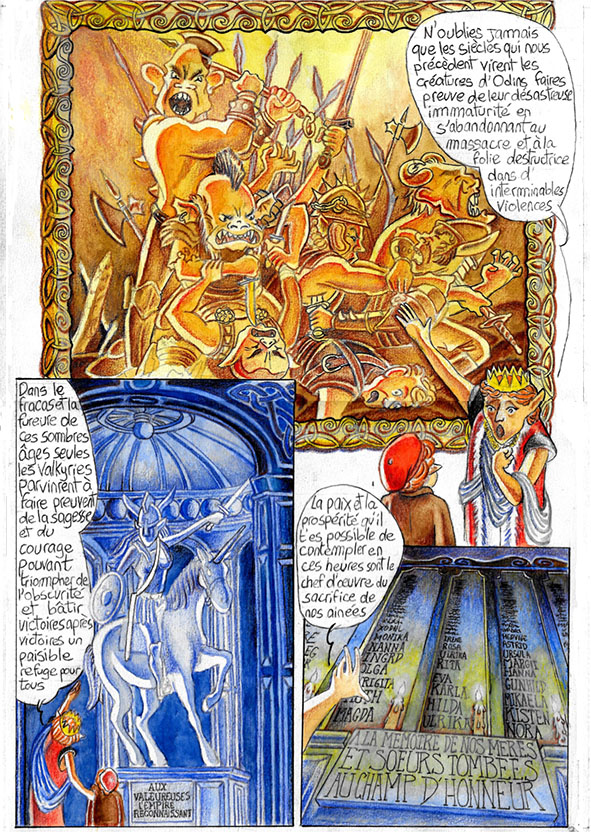 N'oublies jamais
que les siècles qui nous
précèdent virent les
créatures d'Odins faires
preuve de leur désastreuse
immaturité en
s'abandonnant au
massacre et à la
folie destructrice
dans d'
interminables
violences
Dans le
fracas et la
fureure de
ces sombres
âges seules
les valkyries
parvinrent à
faire preuvent
de la sagesse
et du
courage
pouvant
triompher de
l'obscurité
et bâtir
victoires après
victoires un
paisible
refuge pour
tous
AUX
VALEUREUSES
L'EMPIRE
RECONNAISSANT
La paix et la
prospérité qu'il
t'es possible de
contempler en
ces heures soit le
chef d'œuvre du
sacrifice de
nos ainées
MONIKA
NANNA
INGRID
OLGA
BRIGITA
RUTH
MAGDA
IRENE
ROSA
ULRIKA
RITA
EVA
KARLA
HILDA
ULRIKA
HEDVIGE
ASTRID
URSULA
MARGIT
HANNA
GUNHILD
MIKAELA
KISTEN
NORA
A LA MEMOIRE DE NOS MERES
ET SOEURS TOMBEES
AU CHAMP D'HONNEUR